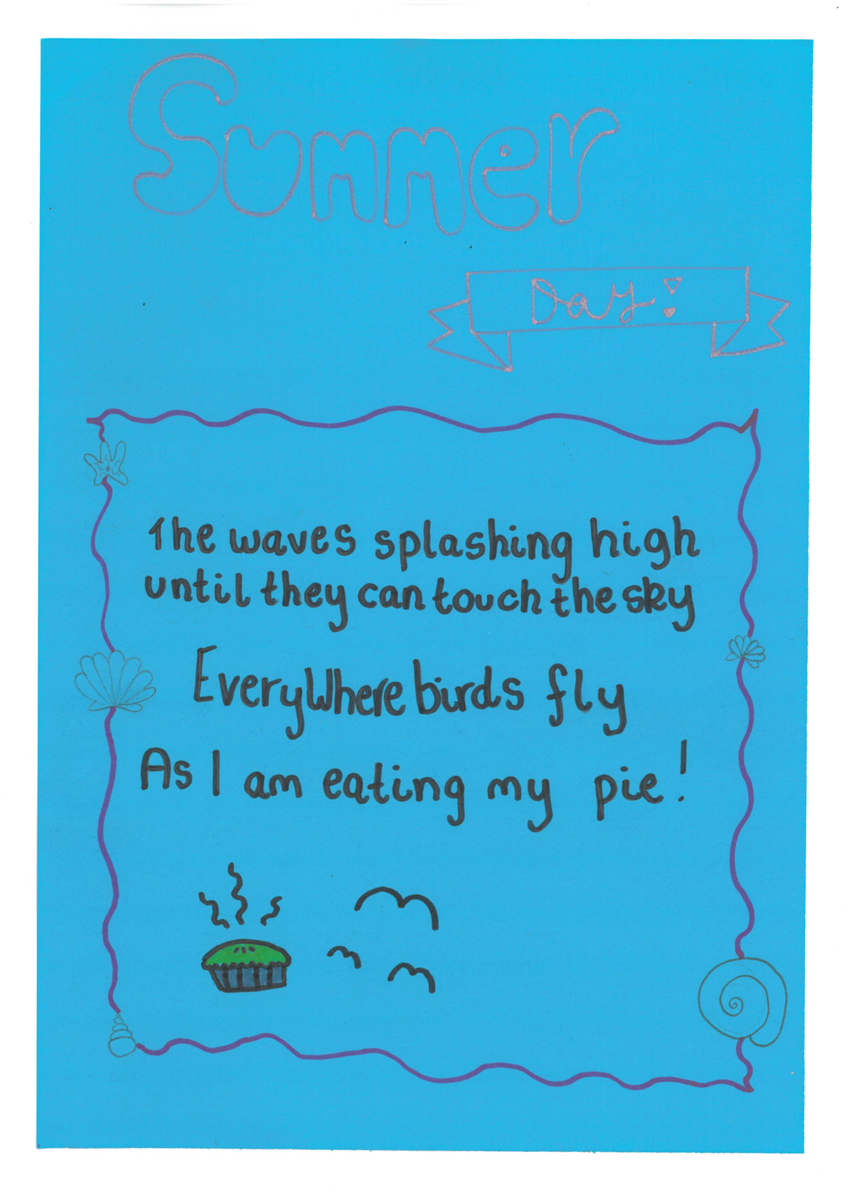 Summer
Day!
The waves splashing high
until they can touch the sky
EveryWhere birds fly
As I am eating my pie!